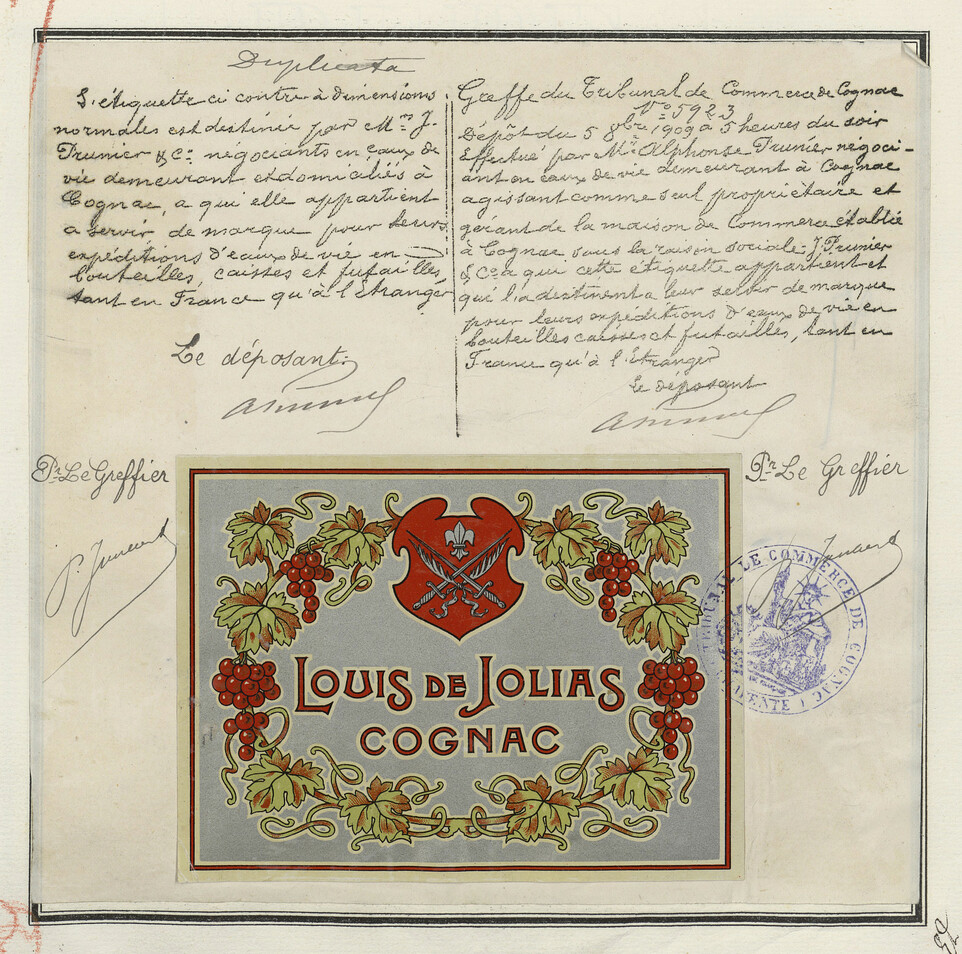 Duplicata
L'étiquette ci contre à dimensions
normales est destinée par Mrs J.
Prunier & Co négociants en eaux de
vie demeurant et domiciliés à
Cognac, a qui elle appartient
a servir de marque pour leurs
expéditions d'eaux de vie en
bouteilles, caisses et futailles,
tant en France qu'à l'Etranger
Le déposant:
Pr Le Greffier
Greffe du Tribunal de Commerce de Cognac
No 5923
Dépôt du 5 8bre 1909 à 5 heures du soir
Effectué par Mr Alphonse Prunier négoci-
ant en eaux de vie demeurant à Cognac
agissant comme seul propriétaire et
gérant de la maison de Commerce établie
à Cognac sous la raison sociale J. Prunier
& Co a qui cette étiquette appartient et
qui l'a destinent a leur servir de marque
pour leurs expéditions d'eaux de vie en
bouteilles caisses et futailles, tant en
France qu'à l'Etranger
Le déposant
Pr Le Greffier
LOUIS DE JOLIAS
COGNAC
TRIBUNAL DE COMMERCE DE COGNAC